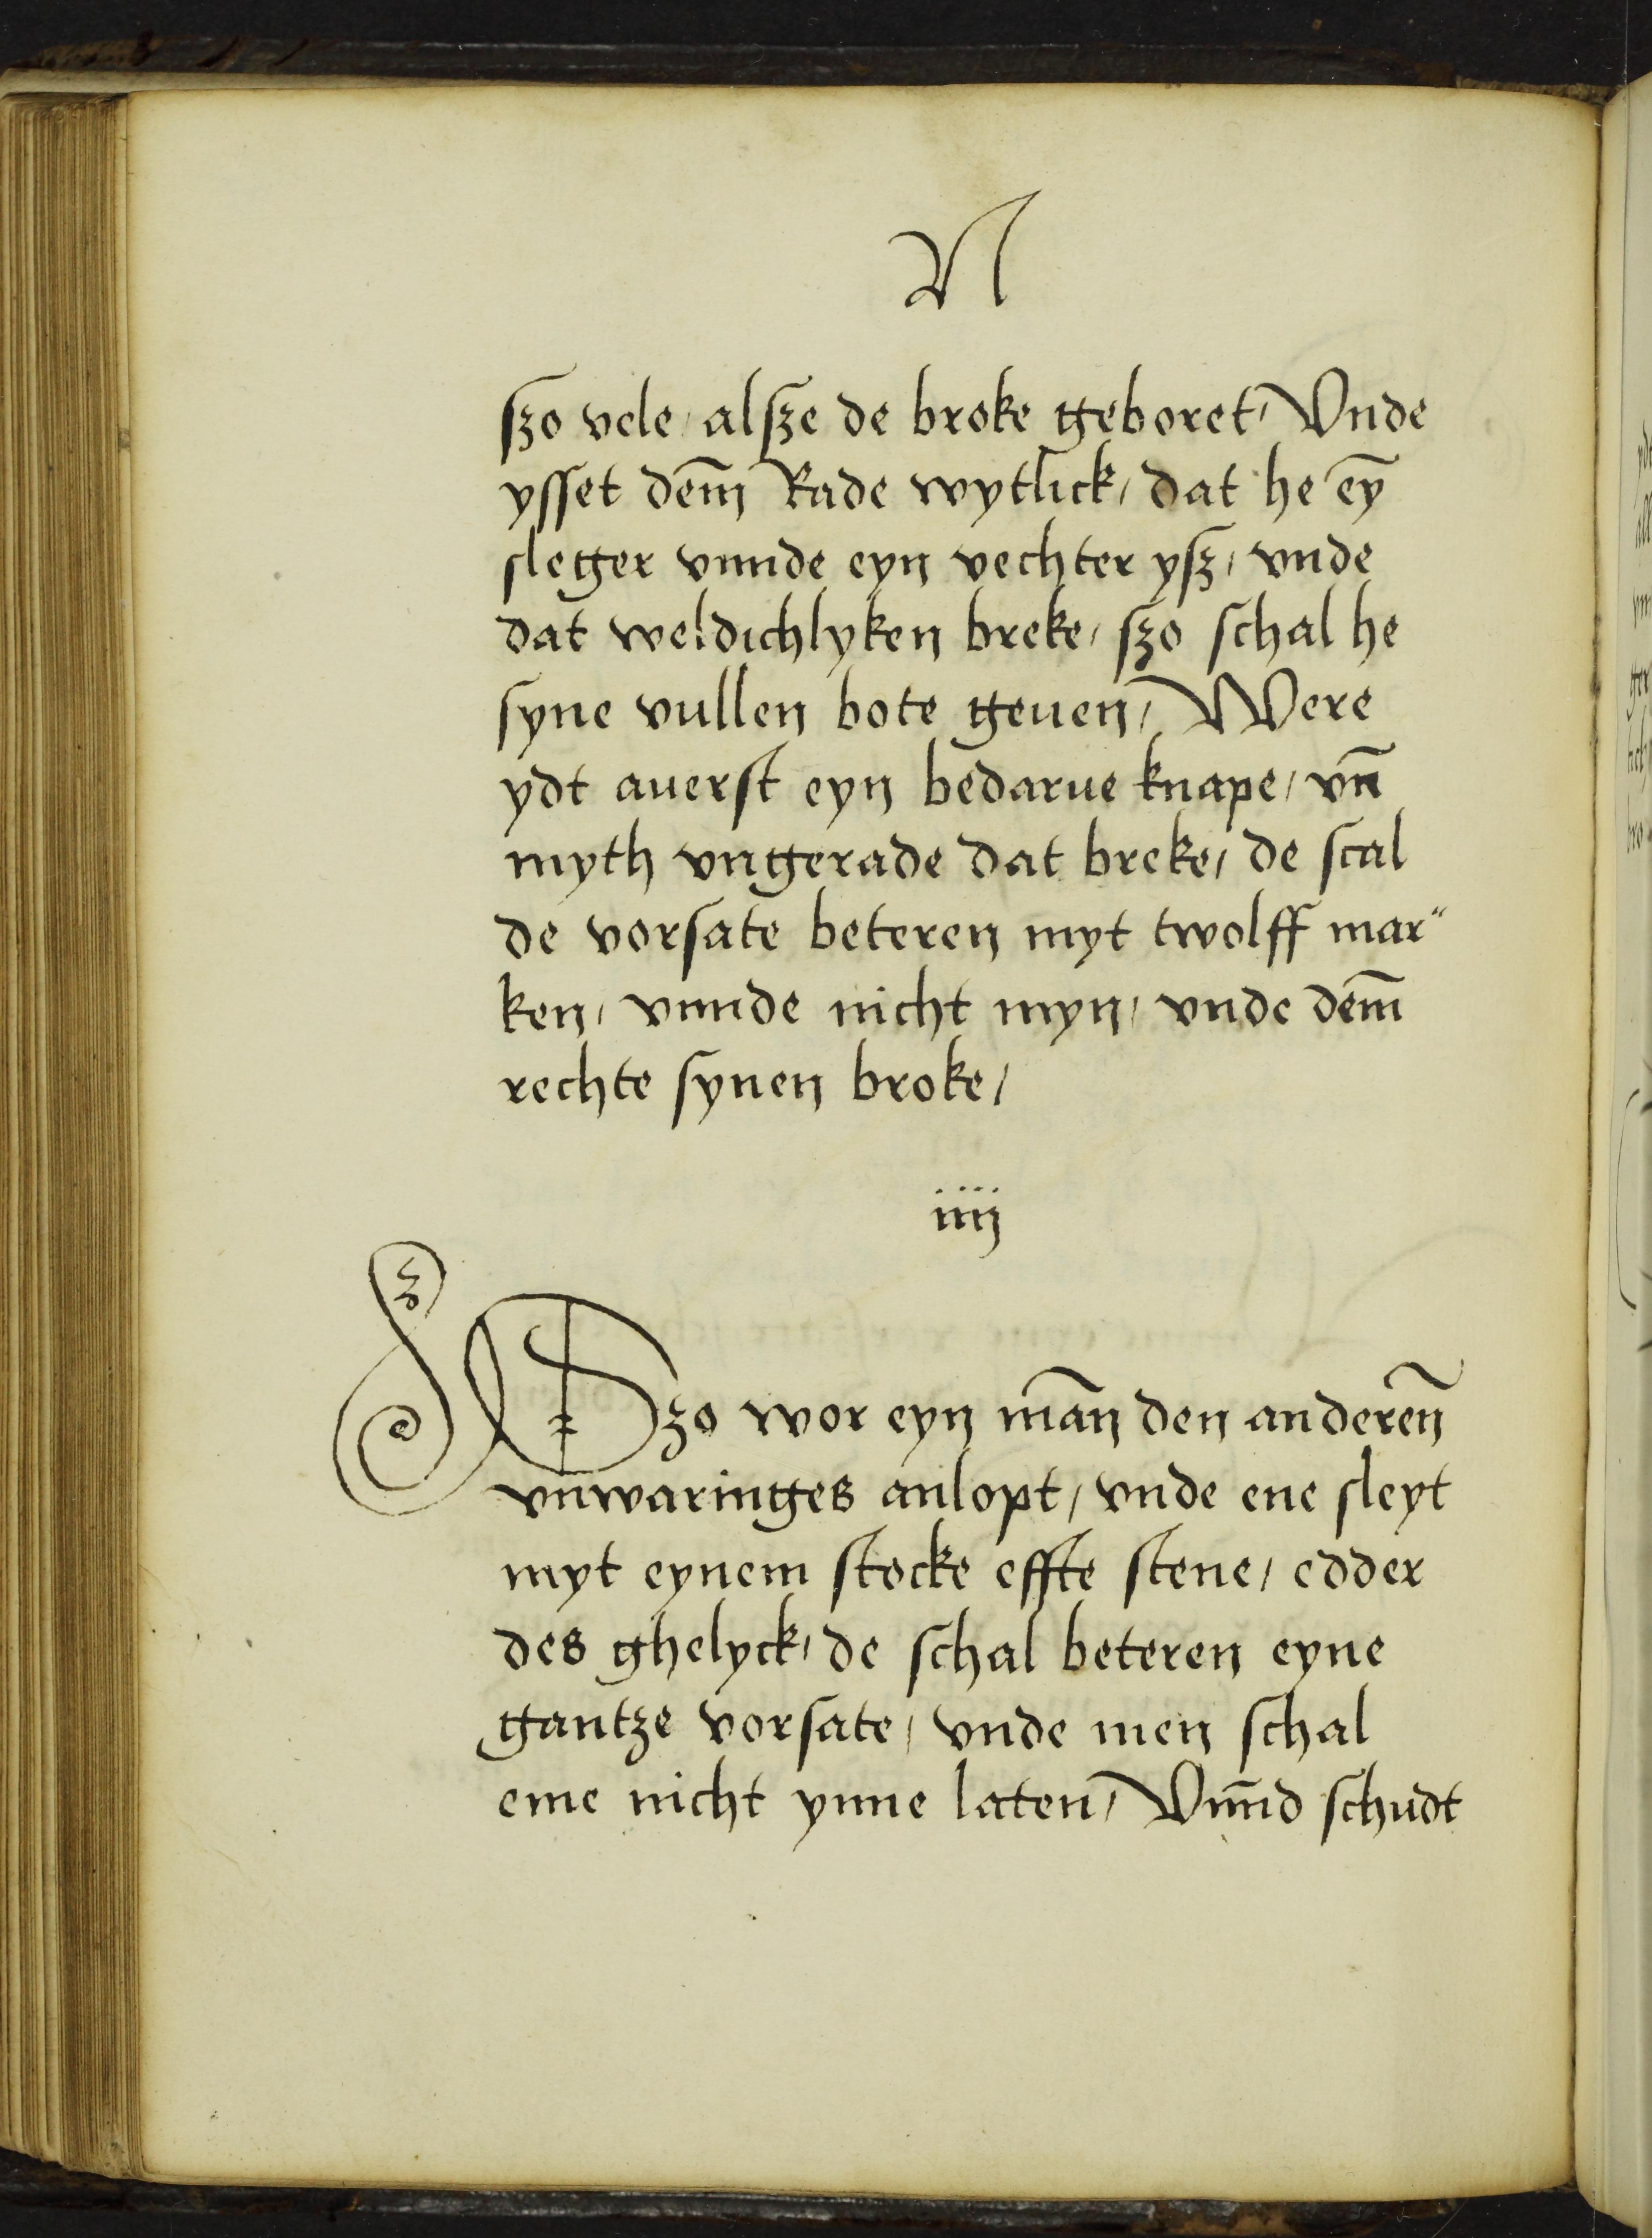 N
szo vele / alsze de broke geboret / Vnde
ysset dem̄ Rade wytlick / dat he eȳ
sleger vnnde eyn vechter ysz / vnde
dat weldichlyken breke / szo schal he
syne vullen bote geuen / Were
ydt auerst eyn bedarue knape / vn̄
myth vngerade dat breke / de scal
de vorsate beteren myt twolff mar"
ken / vnnde nicht myn / vnde dem̄
rechte synen broke /
iiij
Szo wor eyn mān den anderen̄
vnwaringes anlopt / vnde ene sleyt
myt eynem stocke effte stene / edder
des ghelyck / de schal beteren eyne
gantze vorsate / vnde men schal
eme nicht ynne laten / Vnn̄d schudt